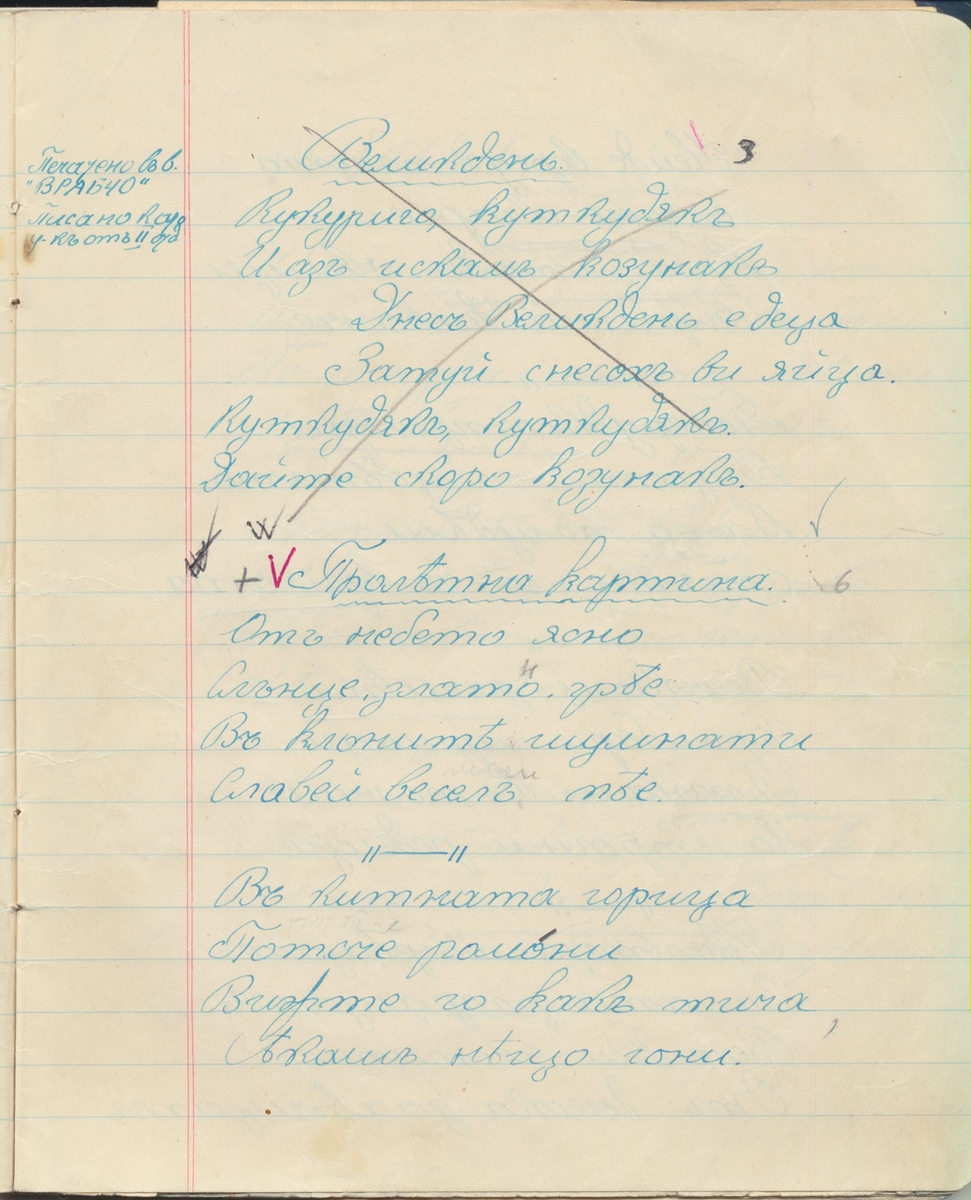 Печатено въ в.
"ВРАБЧО"
Писано като
у-къ отъ II
3
Великдень.
Кукуриго, куткудякъ
И азъ искамъ козунакъ
Днесъ Великдень е деца
Затуй снесохъ ви яйца.
Куткудякъ, куткудякъ.
Дайте скоро козунакъ.
+ V Пролѣтна картина.
6
Отъ небето ясно
Слънце, злато, грѣе
н
Въ клонитѣ шумнати
Славей веселъ пѣе.
"—"
Въ китната горица
Поточе ромо́ни
Вижте го какъ тича,
Ѣкашъ нѣщо гони.